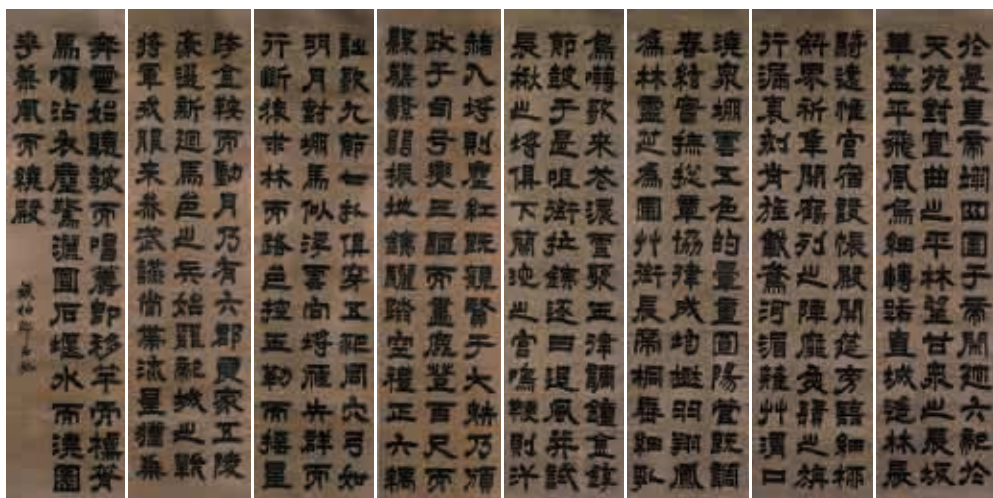 於是皇帝翊四圍于帝閑迴六龍於
天苑對宣曲之平林望甘泉之長坂
華蓋平飛風烏細轉路直城遙林長
騎遠惟宮宿設帳殿開筵旁臨細柳
斜界祈年開鶴列之陣靡魚鬚之旗
行漏裹刻前旌載鳶河湄薙草渭口
澆泉堋雲五色的暈重圓陽管既調
春絃實撫總章協律成均樹羽翔鳳
為林靈芝為圃草御長帶桐垂細乳
鳥囀歌來花濃雪聚玉律調鐘金錞
節鼓于是咀銜拉鐵逐日追風并試
長楸之埒俱下蘭池之宮鳴鞭則汗
赭入埒則塵紅既觀賢于大射乃頒
政于司弓變三驅而畫鹿登百尺而
縣熊繁弱振地鐵驪蹋空禮正六耦
詔歌九節七札俱穿五豝同穴弓如
明月對堋馬似浮雲向埒雁失群而
行斷猿求林而路絕控玉勒而搖星
跨金鞍而動月乃有六郡良家五陵
豪選新迴馬邑之兵始罷龍城之戰
將軍戎服來參武讌尚帶流星猶乘
奔電始聽鼓而唱籌即移竿而標箭
馬噴沾衣塵驚灑面石堰水而澆園
華乘風而繞殿